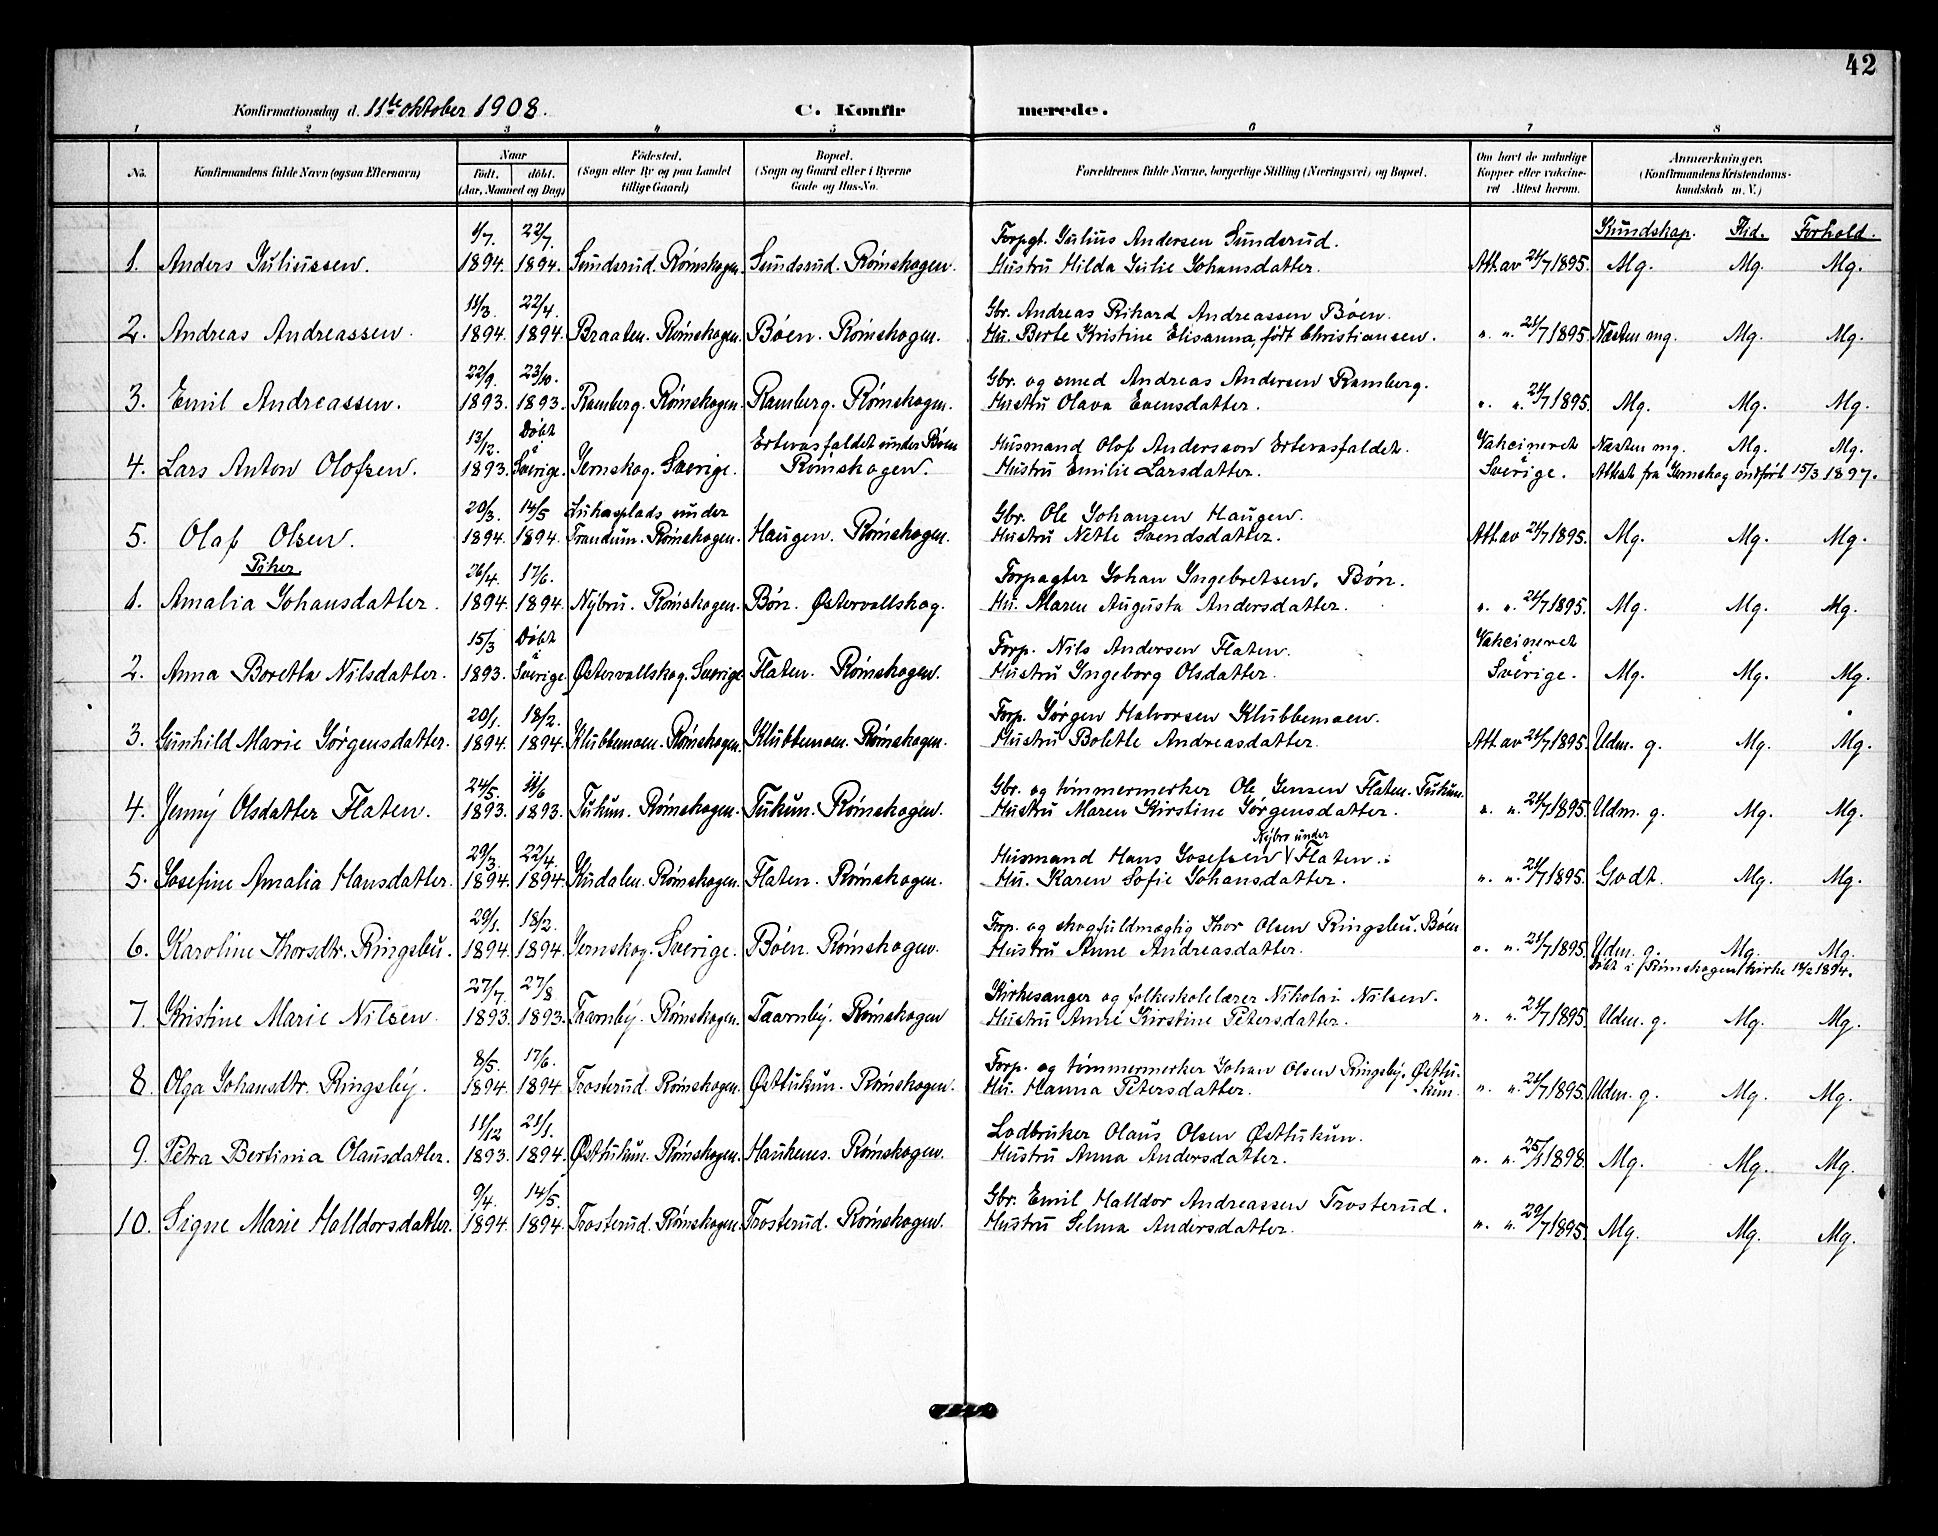 42
Konfirmationsdag d. 11te oktober 1908. C. Konfirmerede.
1 2 3 4 5 6 7 8
No. Konfirmandens fulde Navn (ogsaa Efternavn) Naar Født. døbt. (Aar, Maaned og Dag) Fødested. (Sogn eller By og paa Landet tillige Gaard) Bopæl. (Sogn og Gaard eller i Byerne Gade og Hus-No. Forældrenes fulde Navne, borgerlige Stilling (Næringsvei) og Bopæl. Om havt de naturlige Kopper eller vakcineret Attest herom. Anmærkninger. (Konfirmandens Kristendomskundskab m. V.)
Kundskap. Flid. Forhold.
9/7. 22/7. Forpgt. Julius Andersen Sundsrud.
1. Anders Juliussen. 1894. 1894. Sundsrud. Rømskogen. Sundsrud. Rømskogen. Hustru Hilda Julie Johansdatter. Att. av 24/7 1895. Mg. Mg. Mg.
11/3. 22/4. Gbr. Andreas Rikard Andreassen Bøen.
2. Andreas Andreassen. 1894. 1894. Braaten. Rømskogen. Bøen. Rømskogen. Hu. Berte Kristine Elisanna, født Christiansen. " " 24/7 1895. Næsten mg. Mg. Mg.
22/9. 23/10. Gbr. og smed Andreas Andersen Ramberg.
3. Emil Andreassen. 1893. 1893. Ramberg. Rømskogen. Ramberg. Rømskogen. Hustru Olava Evensdatter. " " 24/7 1895. Mg. Mg. Mg.
13/12. Døbt i Ertevasfaldet under Bøen Husmand Olof Andersson Ertevasfaldet. Vakcineret Næsten mg. Mg. Mg.
4. Lars Anton Olofsen. 1893. Sverige. Jernskog. Sverige. Rømskogen. Hustru Emilie Larsdatter. i Sverige. Attest fra Jernskog indført 15/3 1897.
20/3. 14/5 Lukasplads under Gbr. Ole Johansen Haugen.
5. Olaf Olsen. 1894. 1894. Trandum. Rømskogen. Haugen. Rømskogen. Hustru Nette Svendsdatter. Att. av 24/7 1895. Mg. Mg. Mg.
Piker.
26/4. 17/6. Forpagter Johan Ingebretsen. Bøn.
1. Amalia Johansdatter. 1894. 1894. Nybru. Rømskogen. Bøn. Østervallskog. Hu. Maren Augusta Andersdatter. " " 24/7 1895. Mg. Mg. Mg.
15/3 Døbt i Forp. Nils Andersen Flaten. Vakcineret
2. Anna Boretta Nilsdatter. 1893. Sverige Østervallskog. Sverige Flaten. Rømskogen. Hustru Ingeborg Olsdatter. i Sverige. Mg. Mg. Mg.
20/1. 18/2. Forp. Jørgen Halvorsen Klubbemoen.
3. Gunhild Marie Jørgensdatter. 1894. 1894. Klubbemoen. Rømskogen. Klubbemoen. Rømskogen. Hustru Bolette Andreasdatter. Att av 24/7 1895. Udm. g. Mg. Mg.
24/5. 11/6 Gbr. og tømmermerker Ole Jensen Flaten. Tukun.
4. Jenny Olsdatter Flaten. 1893. 1893. Tukun. Rømskogen. Tukun. Rømskogen. Hustru Maren Kirstine Jørgensdatter. " " 24/7 1895. Udm. g. Mg. Mg.
29/3. 22/4. Husmand Hans Josefsen Nybro under Flaten.
5. Josefine Amalia Hansdatter. 1894. 1894. Kudalen. Rømskogen. Flaten. Rømskogen. Hu. Karen Sofie Johansdatter. " " 24/7 1895. Godt. Mg. Mg.
29/1. 18/2. Forp. og skogfuldmægtig Thor Olsen Ringsbu. Bøen
6. Karoline Thorsdtr. Ringsbu. 1894 1894 Jernskog. Sverige. Bøen. Rømskogen. Hustru Anne Andreasdatter. " " 24/7 1895. Udm. g. Mg. Mg.
Døbt i Rømskogen kirke 18/2 1894.
27/7. 27/8 Kirkesanger og folkeskolelærer Nikolai Nilsen.
7. Kristine Marie Nilsen. 1893. 1893. Taarnby. Rømskogen. Taarnby. Rømskogen Hustru Anne Kirstine Petersdatter. " " 24/7 1895. Udm. g. Mg. Mg.
8/5. 17/6. Forp. og tømmermerker Johan Olsen Ringsby. Østtu-
8. Olga Johansdtr. Ringsby. 1894. 1894 Trosterud. Rømskogen. Østtukun. Rømskogen. Hu. Hanna Petersdatter. -kun. " " 24/7 1895. Udm. g. Mg. Mg.
11/12 21/1. Lodbruker Olaus Olsen Østtukun.
9. Petra Bertinia Olausdatter. 1893. 1894. Østtukun. Rømskogen. Haukenes. Rømskogen. Hustru Anna Andersdatter. " " 25/7 1898. Mg. Mg. Mg.
9/4. 14/5. Gbr. Emil Halldor Andreassen Trosterud.
10. Signe Marie Halldorsdatter. 1894. 1894. Trosterud. Rømskogen. Trosterud. Rømskogen. Hustru Selma Andersdatter. " " 29/7 1895. Mg. Mg. Mg.